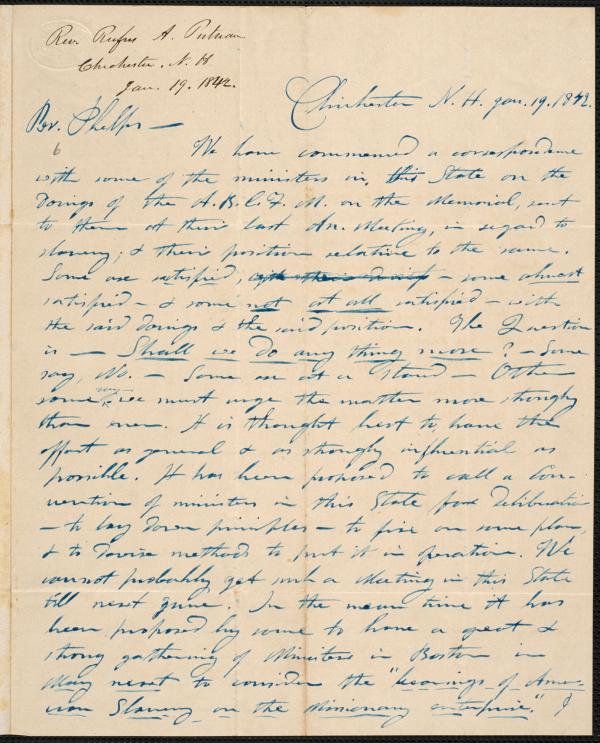 Rev. Rufus A. Putnam
Chichester, N. H
Jan. 19. 1842.
Chichester N. H. Jan. 19. 1842.
Br. Phelps —
6
We have commenced a correspondence
with some of the ministers in this State on the
doings of the A. B. C. F. M. on the Memorial, sent
to them at their last An. Meeting, in regard to
slavery, & their position relative to the same.
Some are satisfied, — some almost
satisfied — & some not at all satisfied — with
the said doings & the said position. The Question
is — Shall we do any thing more? — Some
say, No. — Some are at a stand — Others
some say we must urge the matter more strongly
than ever. It is thought best to have the
effort as general & as strongly influential as
possible. It has been proposed to call a Con-
vention of ministers in this State for deliberation
— to lay down principles — to fix on some plan,
& to devise methods to put it in operation. We
cannot probably get such a Meeting in this State
till next June. In the mean time it has
been proposed by some to have a great &
strong gathering of Ministers in Boston in
May next to consider the "bearings of Amer-
ican Slavery on the Missionary enterprise." &